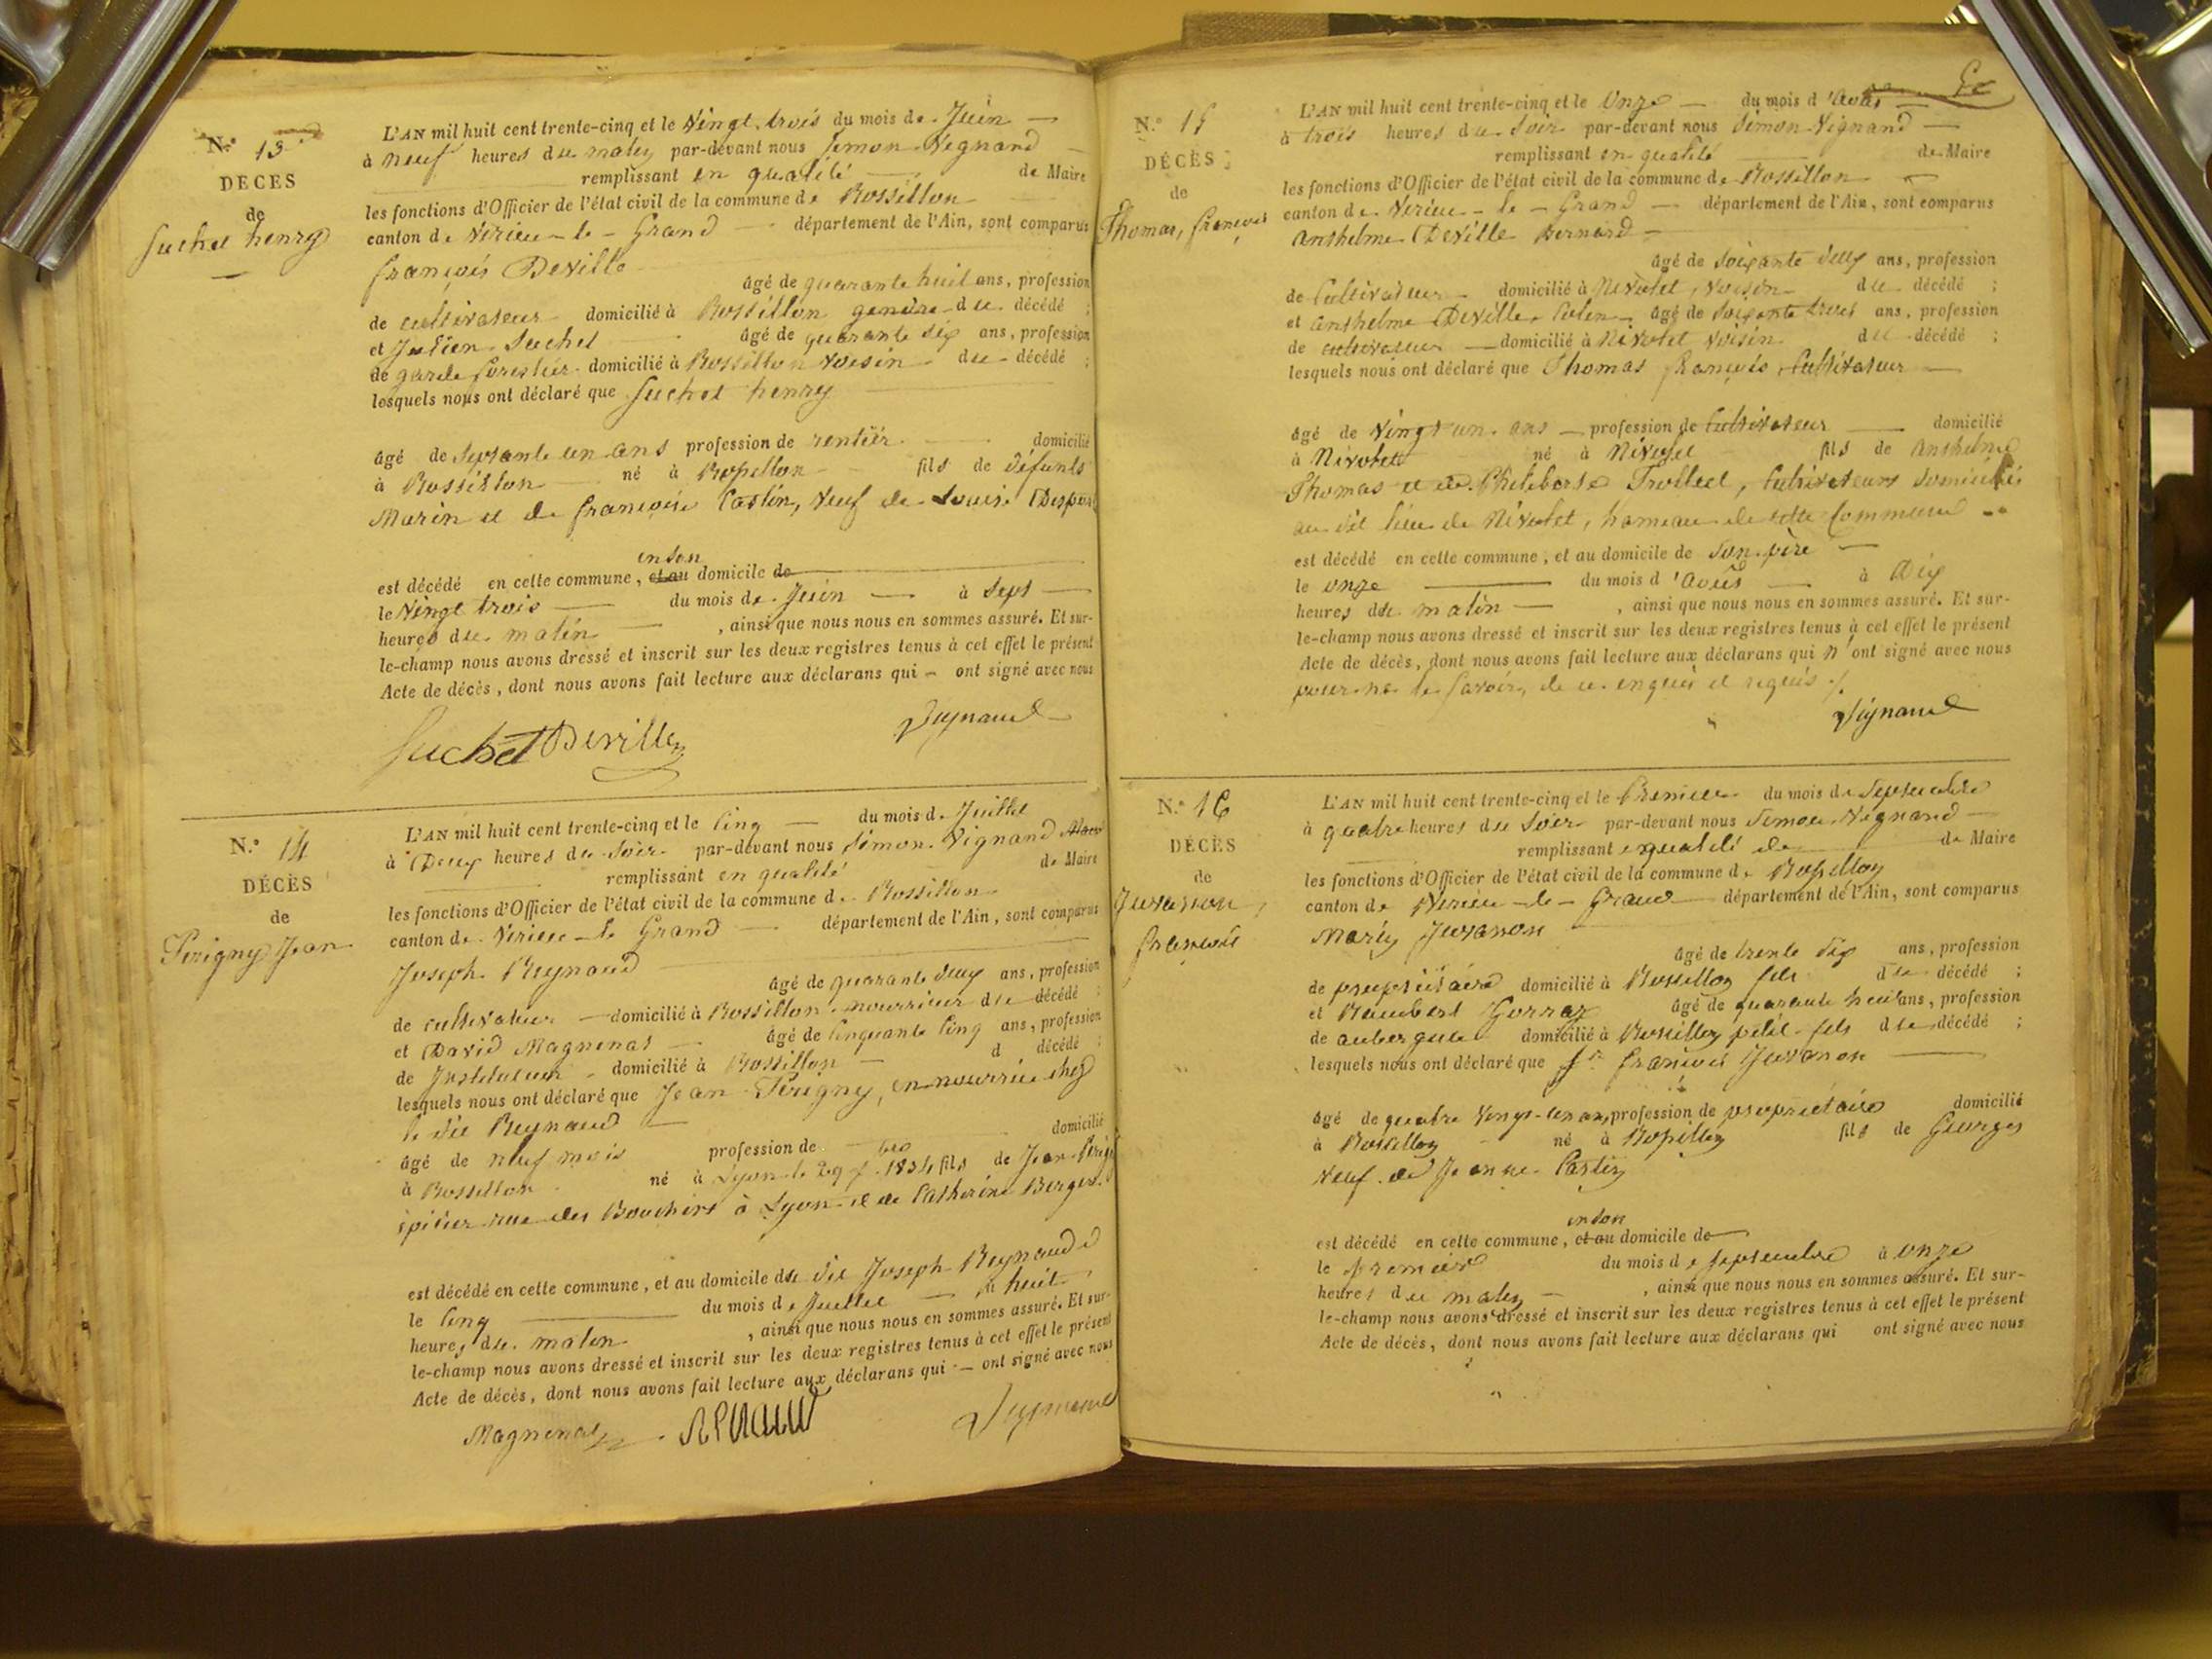 N.° 13
DÉCÈS
de
Suchet henry
L'AN mil huit cent trente-cinq et le Vingt trois du mois de Juin
à neuf heures du matin par-devant nous Simon Vignand
remplissant en qualité de Maire
les fonctions d'Officier de l'état civil de la commune de Rossillon
canton de Virieu-le-Grand département de l'Ain, sont comparus
françois Deville
âgé de quarante huit ans, profession
de cultivateur domicilié à Rossillon gendre du décédé ;
et Julien Suchet âgé de quarante six ans, profession
de garde forestier domicilié à Rossillon voisin du décédé ;
lesquels nous ont déclaré que Suchet henry
âgé de septante un ans profession de rentier domicilié
à Rossillon né à Rossillon fils de défunts
Marin et de françoise Castin, veuf de Louise
en son
est décédé en cette commune, et au domicile de
le Vingt trois du mois de Juin à Sept
heures du matin , ainsi que nous nous en sommes assuré. Et sur-
le-champ nous avons dressé et inscrit sur les deux registres tenus à cet effet le présent
Acte de décès, dont nous avons fait lecture aux déclarans qui ont signé avec nous
Suchet Deville Vignand
N.° 14
DÉCÈS
de
Perigny Jean
L'AN mil huit cent trente-cinq et le Cinq du mois de Juillet
à Deux heures du Soir par-devant nous Simon Vignand
remplissant en qualité de Maire
les fonctions d'Officier de l'état civil de la commune de Rossillon
canton de Virieu-le Grand département de l'Ain, sont comparus
Joseph Reynaud
âgé de quarante deux ans, profession
de cultivateur domicilié à Rossillon nourricier du décédé ;
et David Magnenat âgé de Cinquante Cinq ans, profession
de Instituteur domicilié à Rossillon d décédé ;
lesquels nous ont déclaré que Jean Perigny, en nourrice chez
le dit Reynaud
âgé de neuf mois profession de domicilié
à Rossillon né à Lyon le 29 7bre 1834 fils de Jean
épicier rue des Bouchers à Lyon et de Catherine Berger.
est décédé en cette commune, et au domicile du dit Joseph Reynaud
le Cinq du mois de Juillet à huit
heures du matin , ainsi que nous nous en sommes assuré. Et sur-
le-champ nous avons dressé et inscrit sur les deux registres tenus à cet effet le présent
Acte de décès, dont nous avons fait lecture aux déclarans qui ont signé avec nous
Magnenat Vignand
N.° 15
DÉCÈS
de
Thomas, françois
L'AN mil huit cent trente-cinq et le Onze du mois d'Août
à trois heures du Soir par-devant nous Simon Vignand
remplissant en qualité de Maire
les fonctions d'Officier de l'état civil de la commune de Rossillon
canton de Virieu-le-Grand département de l'Ain, sont comparus
Anthelme Deville Bernard
âgé de soixante deux ans, profession
de Cultivateur domicilié à Nivolet, voisin du décédé ;
et Anthelme Deville âgé de soixante trois ans, profession
de cultivateur domicilié à Nivolet voisin du décédé ;
lesquels nous ont déclaré que Thomas françois, Cultivateur
âgé de Vingt un ans profession de Cultivateur domicilié
à Nivolet né à Nivolet fils de Anthelme
Thomas et de Philiberte Trolliet, Cultivateurs domiciliés
au dit lieu de Nivolet, hameau de cette Commune
est décédé en cette commune, et au domicile de son père
le onze du mois d'Août à Dix
heures du matin , ainsi que nous nous en sommes assuré. Et sur-
le-champ nous avons dressé et inscrit sur les deux registres tenus à cet effet le présent
Acte de décès, dont nous avons fait lecture aux déclarans qui n'ont signé avec nous
pour ne le savoir, de ce enquis et requis
Vignand
N.° 16
DÉCÈS
de
Juvanon,
françois
L'AN mil huit cent trente-cinq et le Premier du mois de Septembre
à quatre heures du Soir par-devant nous Simon Vignand
remplissant en qualité de de Maire
les fonctions d'Officier de l'état civil de la commune de Rossillon
canton de Virieu-le-Grand département de l'Ain, sont comparus
Marin Juvanon
âgé de trente six ans, profession
de propriétaire domicilié à Rossillon fils du décédé ;
et Rambert Gorraz âgé de quarante huit ans, profession
de domicilié à Rossillon petit-fils du décédé ;
lesquels nous ont déclaré que Sr françois Juvanon
âgé de quatre vingt-un ans, profession de propriétaire domicilié
à Rossillon né à Rossillon fils de Georges
veuf de Jeanne Castin
en son
est décédé en cette commune, et au domicile de
le premier du mois de septembre à onze
heures du matin , ainsi que nous nous en sommes assuré. Et sur-
le-champ nous avons dressé et inscrit sur les deux registres tenus à cet effet le présent
Acte de décès, dont nous avons fait lecture aux déclarans qui ont signé avec nous